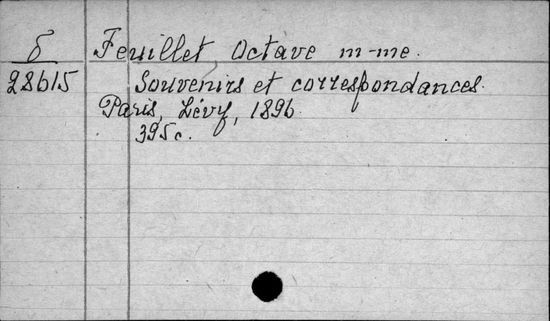 б
28615
Feuillet, Octave m-me.
Souvenirs et correspondances.
Paris, Lévy, 1896.
395c.